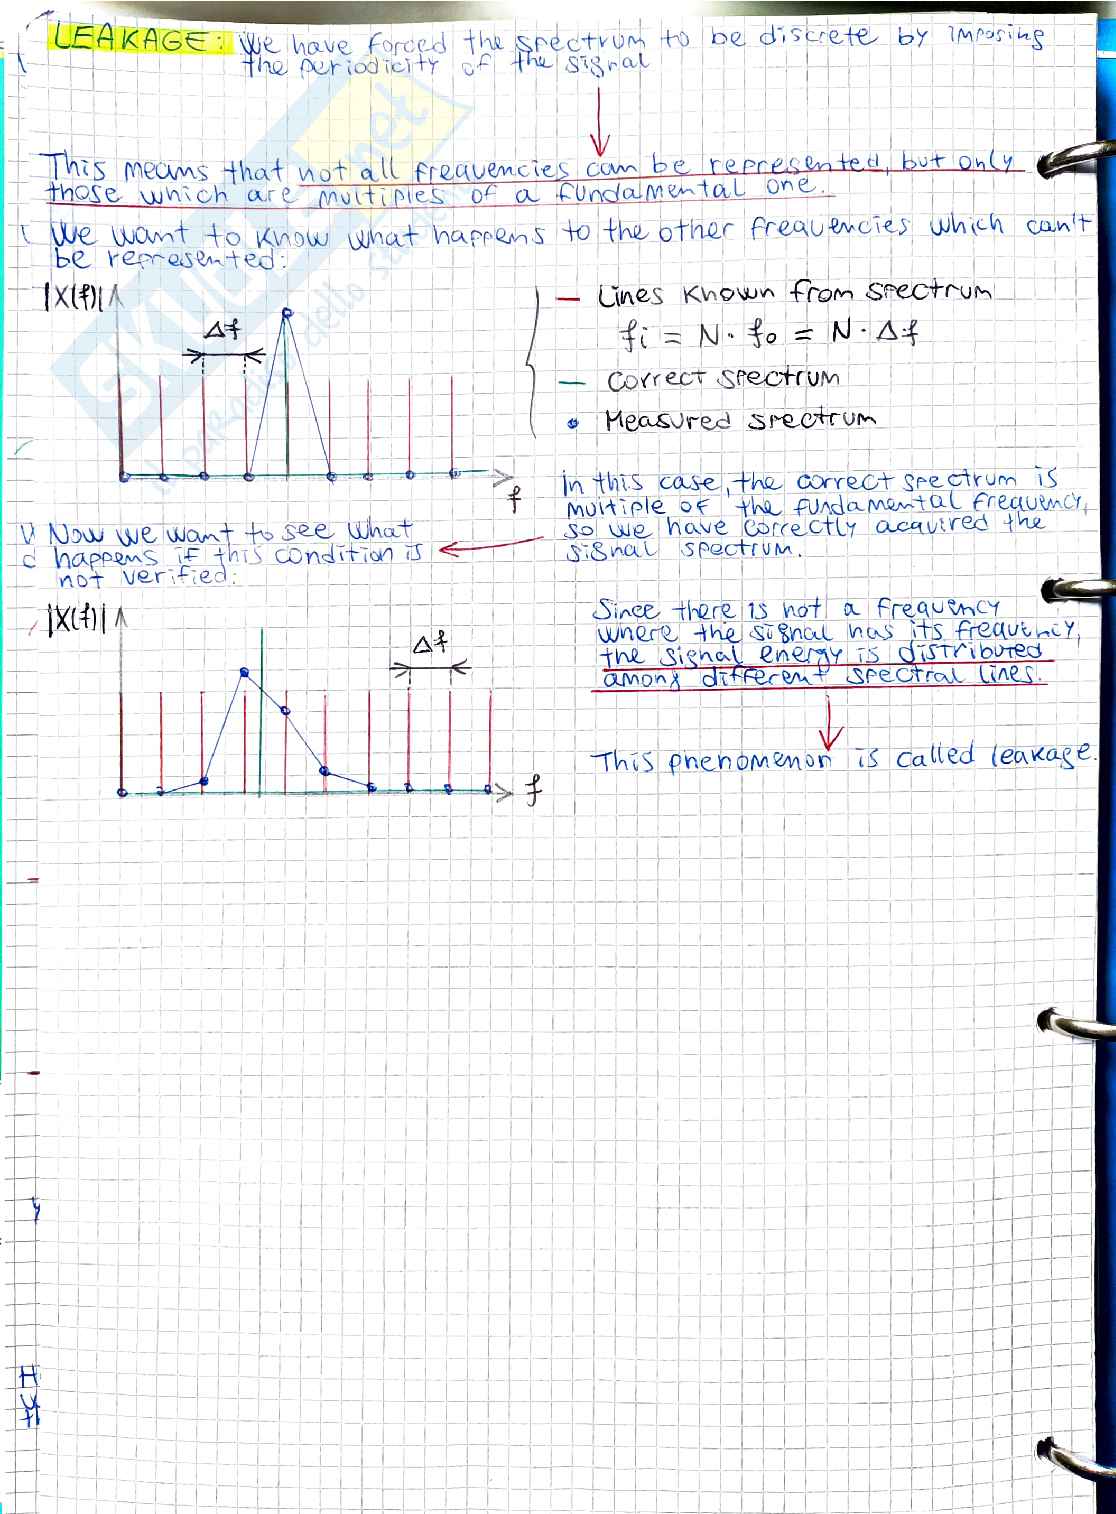 LEAKAGE: We have forced the spectrum to be discrete by imposing
the periodicity of the signal
This means that not all frequencies can be represented, but only
those which are multiples of a fundamental one.
We want to know what happens to the other frequencies which can't
be represented:
|X(f)|
Δf
f
— Lines known from spectrum
fi = N · f0 = N · Δf
— Correct spectrum
• Measured spectrum
In this case, the correct spectrum is
multiple of the fundamental frequency,
so we have correctly acquired the
signal spectrum.
Now we want to see what
happens if this condition is
not verified:
|X(f)|
Δf
f
Since there is not a frequency
where the signal has its frequency,
the signal energy is distributed
among different spectral lines.
This phenomenon is called leakage.